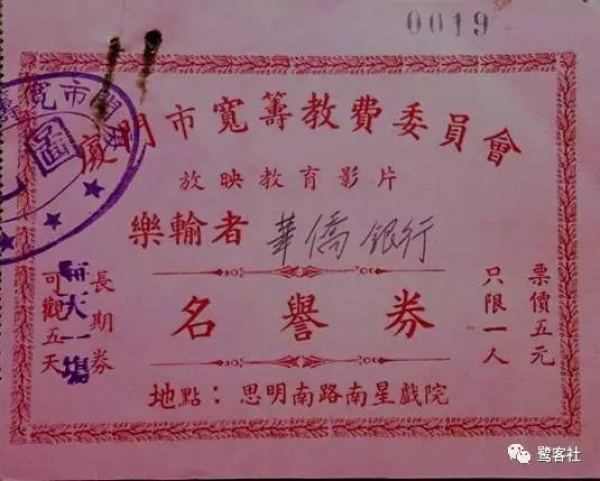 0019
廈門市寬籌教費委員會
放映教育影片
樂輸者 華僑銀行
名譽券
票價五元
只限一人
長期券
可觀五天
每天一場
地點：思明南路南星戲院
門市寬
鹭客社